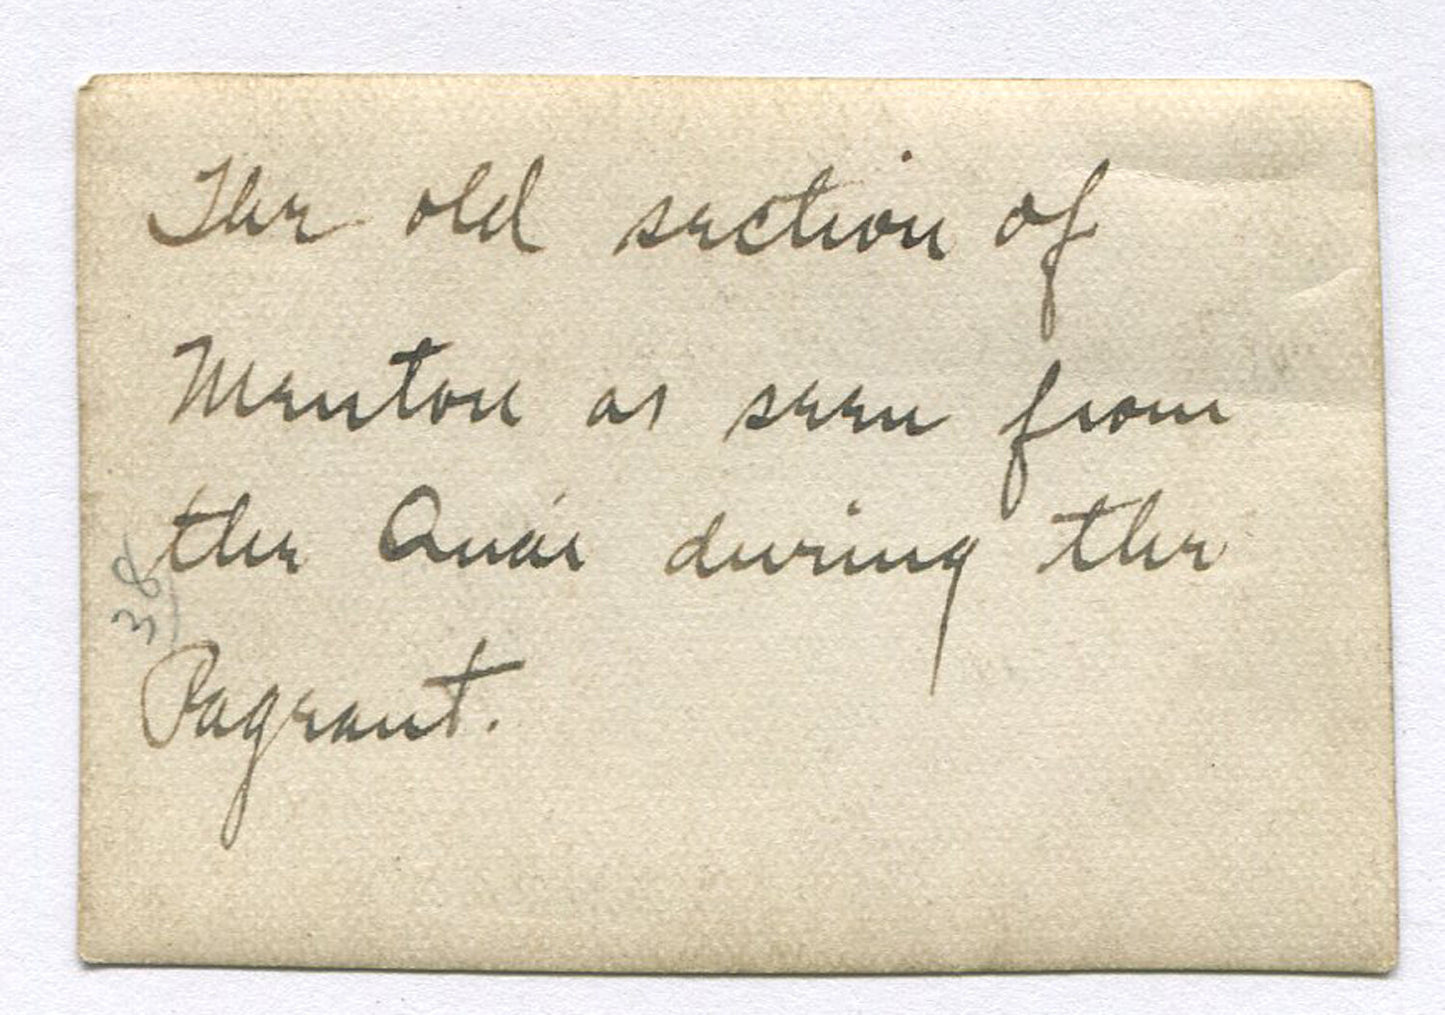 The old section of
Menton as seen from
the Quai during the
Pageant.
38